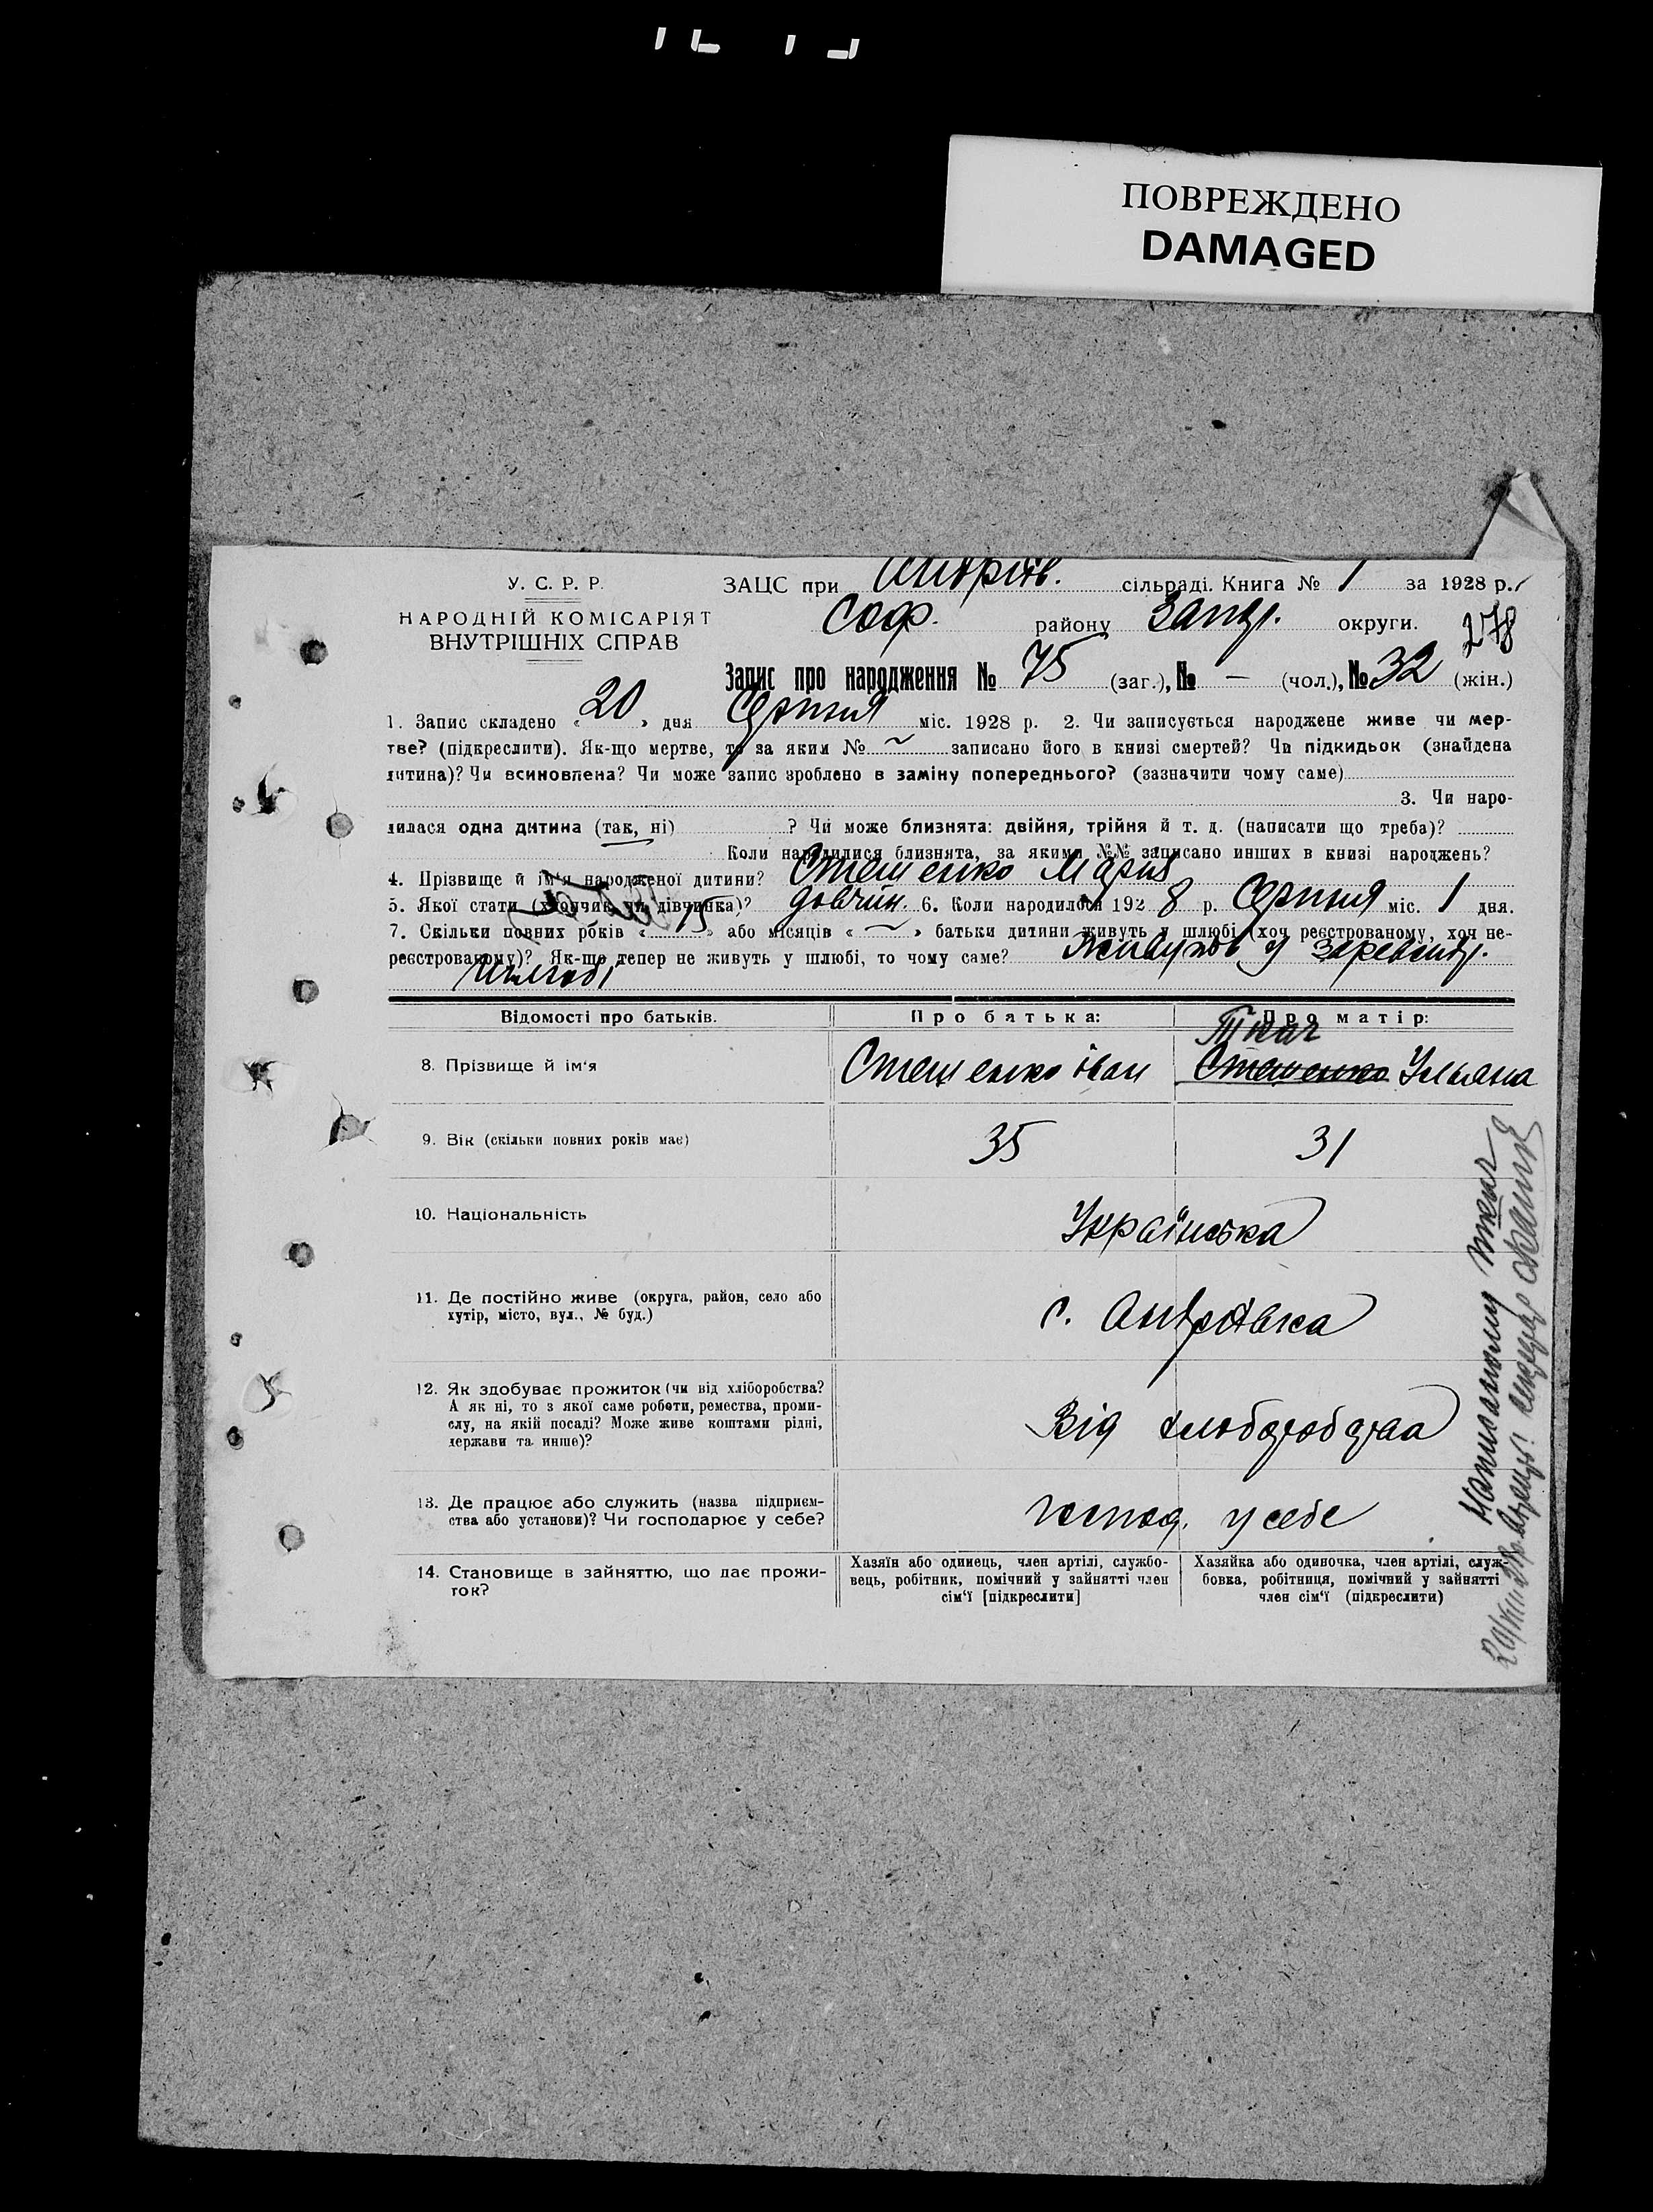 ПОВРЕЖДЕНО
DAMAGED
У. С. Р. Р.
НАРОДНІЙ КОМІСАРІЯТ
ВНУТРІШНІХ СПРАВ
ЗАЦС при Андріїв. сільраді. Книга № 1 за 1928 р.
Соф. району Запор. округи.
278
Запис про народження № 75 (заг.), № — (чол.), № 32 (жін.)
1. Запис складено « 20 » дня Серпня міс. 1928 р. 2. Чи записується народжене живе чи мер-
тве? (підкреслити). Як-що мертве, то за яким № ~ записано його в книзі смертей? Чи підкидьок (знайдена
дитина)? Чи всиновлена? Чи може запис зроблено в заміну попереднього? (зазначити чому саме)
3. Чи наро-
дилася одна дитина (так, ні) ? Чи може близнята: двійня, трійня й т. д. (написати що треба)?
Коли народилися близнята, за якими №№ записано инших в книзі народжень?
4. Прізвище й ім'я народженої дитини? Стешенко Марія
5. Якої стати (хлопчик чи дівчинка)? дівчин. 6. Коли народилося 192 8 р. Серпня міс. 1 дня.
7. Скільки повних років « 15 » або місяців « ~ » батьки дитини живуть у шлюбі (хоч реєстрованому, хоч не-
реєстрованому)? Як-що тепер не живуть у шлюбі, то чому саме? Живуть у
шлюбі
Відомості про батьків. Про батька: Про матір:
Ткач
8. Прізвище й ім'я Стешенко Іван Стешенко Ульяна
9. Вік (скільки повних років має) 35 31
10. Національність Українська
11. Де постійно живе (округа, район, село або
хутір, місто, вул., № буд.) с. Андріївка
12. Як здобуває прожиток (чи від хліборобства?
А як ні, то з якої саме роботи, ремества, проми-
слу, на якій посаді? Може живе коштами рідні,
держави та инше)? Від хліборобства
13. Де працює або служить (назва підприєм-
ства або установи)? Чи господарює у себе? господ. у себе
14. Становище в зайняттю, що дає прожи-
ток?
Хазяїн або одинець, член артілі, службо-
вець, робітник, помічний у зайнятті член
сім'ї [підкреслити]
Хазяйка або одиночка, член артілі, служ-
бовка, робітниця, помічний у зайнятті
член сім'ї (підкреслити)
Написаному Ткач